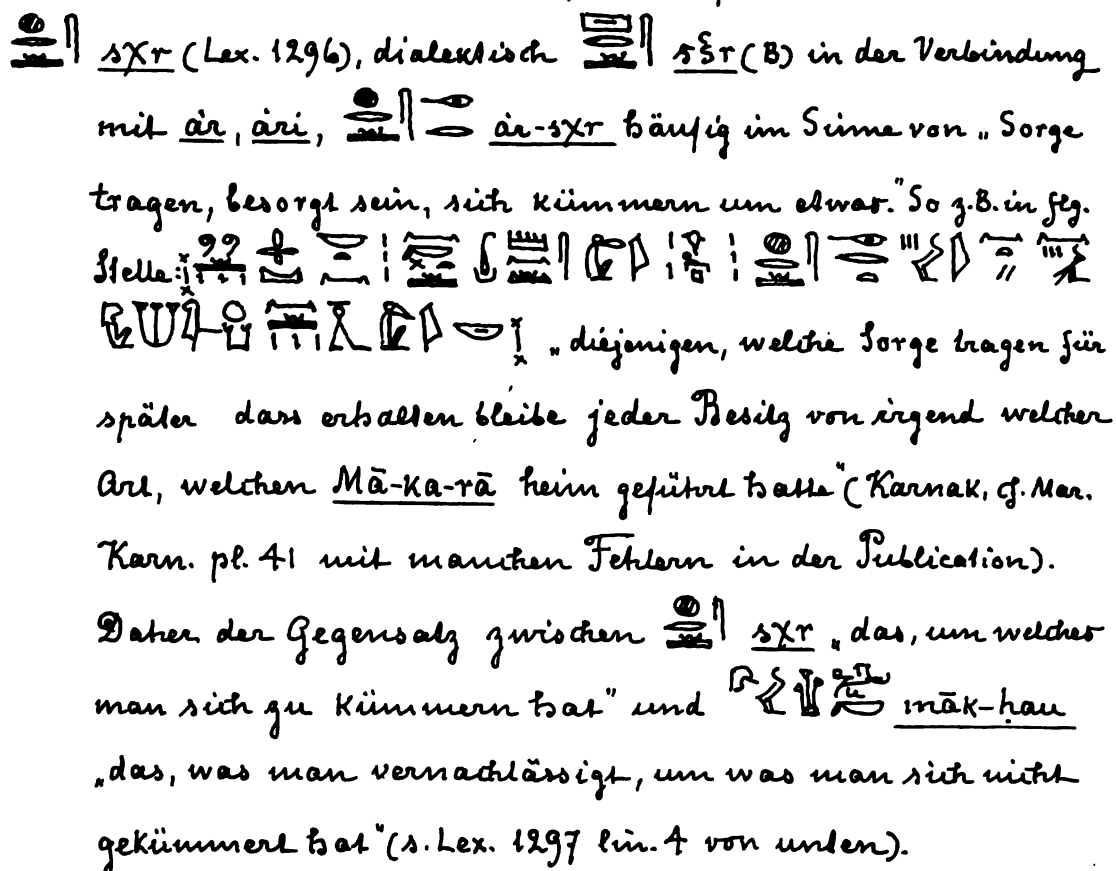 sχr (Lex. 1296), dialektisch sšr (B) in der Verbindung
mit ȧr, ȧri, ȧr-sχr häufig im Sinne von „Sorge
tragen, besorgt sein, sich kümmern um etwas." So z.B. in flg.
Stelle:
„diejenigen, welche Sorge tragen für
später dass erhalten bleibe jeder Besitz von irgend welcher
Art, welchen Mā-ka-rā heim geführt hatte" (Karnak, cf. Mar.
Karn. pl. 41 mit manchen Fehlern in der Publication).
Daher der Gegensatz zwischen sχr „das, um welches
man sich zu kümmern hat" und māk-ḥau
„das, was man vernachlässigt, um was man sich nicht
gekümmert hat" (s. Lex. 1297 lin. 4 von unten).